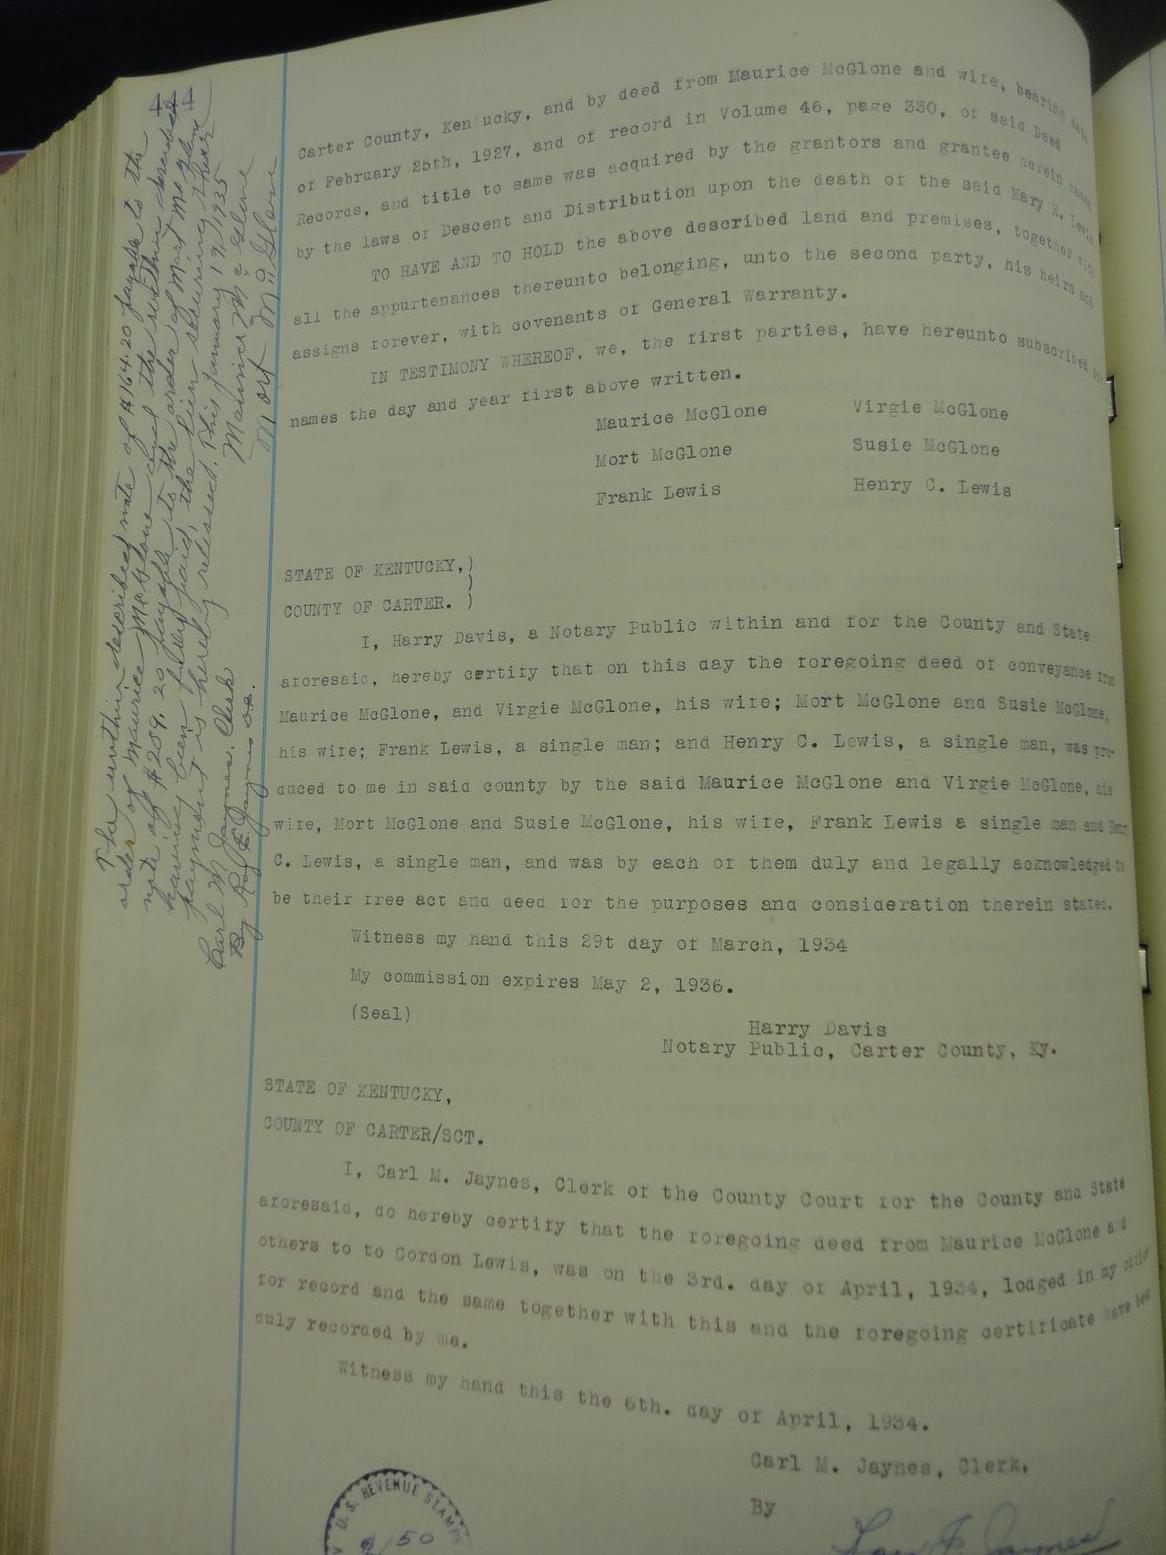 Carter County, Kentucky, and by deed from Maurice McGlone and wife, bearing date
of February 25th, 1927, and of record in Volume 46, page 330, of said Deed
Records, and title to same was acquired by the grantors and grantee herein named
by the laws of Descent and Distribution upon the death of the said Mary E. Lewis,
TO HAVE AND TO HOLD the above described land and premises, together with
all the appurtenances thereunto belonging, unto the second party, his heirs and
assigns forever, with covenants of General Warranty.
IN TESTIMONY WHEREOF, we, the first parties, have hereunto subscribed our
names the day and year first above written.
Maurice McGlone Virgie McGlone
Mort McGlone Susie McGlone
Frank Lewis Henry C. Lewis
STATE OF KENTUCKY,)
)
COUNTY OF CARTER. )
I, Harry Davis, a Notary Public within and for the County and State
aforesaid, hereby certify that on this day the foregoing deed of conveyance from
Maurice McGlone, and Virgie McGlone, his wife; Mort McGlone and Susie McGlone,
his wife; Frank Lewis, a single man; and Henry C. Lewis, a single man, was pro-
duced to me in said county by the said Maurice McGlone and Virgie McGlone, his
wife, Mort McGlone and Susie McGlone, his wife, Frank Lewis a single man and Henry
C. Lewis, a single man, and was by each of them duly and legally acknowledged to
be their free act and deed for the purposes and consideration therein stated.
Witness my hand this 29t day of March, 1934
My commission expires May 2, 1936.
(Seal)
Harry Davis
Notary Public, Carter County, Ky.
STATE OF KENTUCKY,
COUNTY OF CARTER/SCT.
I, Carl M. Jaynes, Clerk of the County Court for the County and State
aforesaid, do hereby certify that the foregoing deed from Maurice McGlone and
others to to Gordon Lewis, was on the 3rd. day of April, 1934, lodged in my office
for record and the same together with this and the foregoing certificate have been
duly recorded by me.
Witness my hand this the 6th. day of April, 1934.
Carl M. Jaynes, Clerk,
By
U.S. REVENUE STAMPS
50
444
The within described note of $164.20 payable to the
order of Maurice McGlone and the within described
note of $289.20 payable to the order of Mort McGlone
having been fully paid, the lien securing their
payment is hereby released. This January 19, 1935
Maurice McGlone
Mort McGlone
Carl M Jaynes. Clerk
By Jaynes D.C.